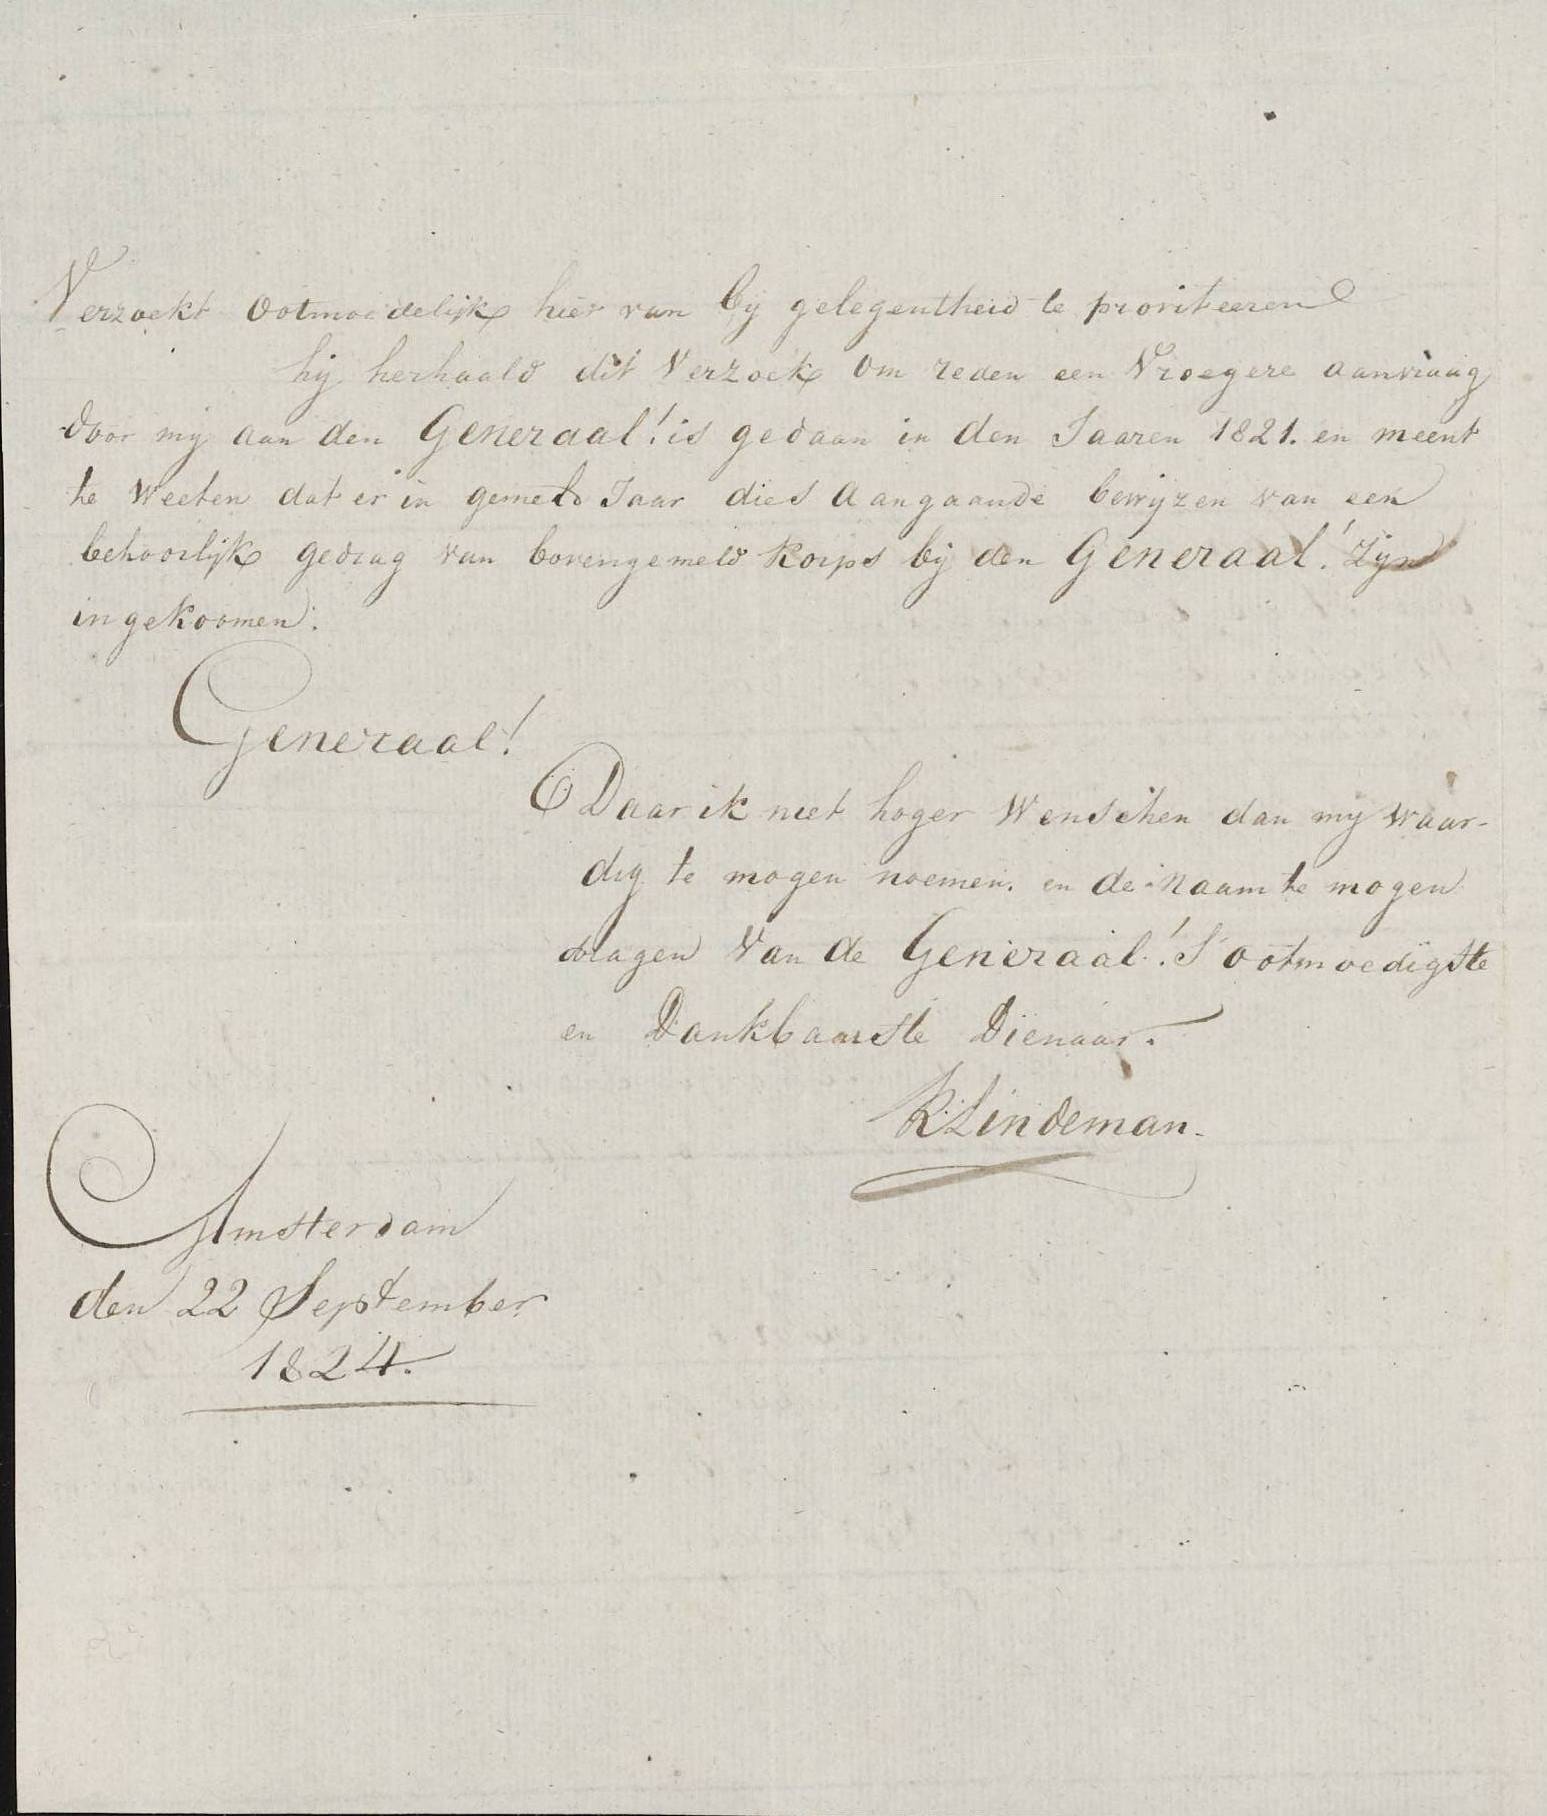 Verzoekt ootmoedelijk hier van bij gelegentheid te proviteeren
hij herhaald dit Verzoek om reden een Vroegere aanvraag
door mij aan den Generaal! is gedaan in den Jaaren 1821. en meent
te weeten dat er in gemeld Jaar dies aangaande bewijzen van een
behoorlijk gedrag van bovengemeld korps bij den Generaal! Zijn
ingekoomen.
Generaal!
Daar ik niet hoger Wenschen dan mij waar-
dig te mogen noemen. en de Naam te mogen
dragen Van de Generaal! S ootmoedigste
en Dankbaarste Dienaar.
R Lindeman.
Amsterdam
den 22 September
1824.